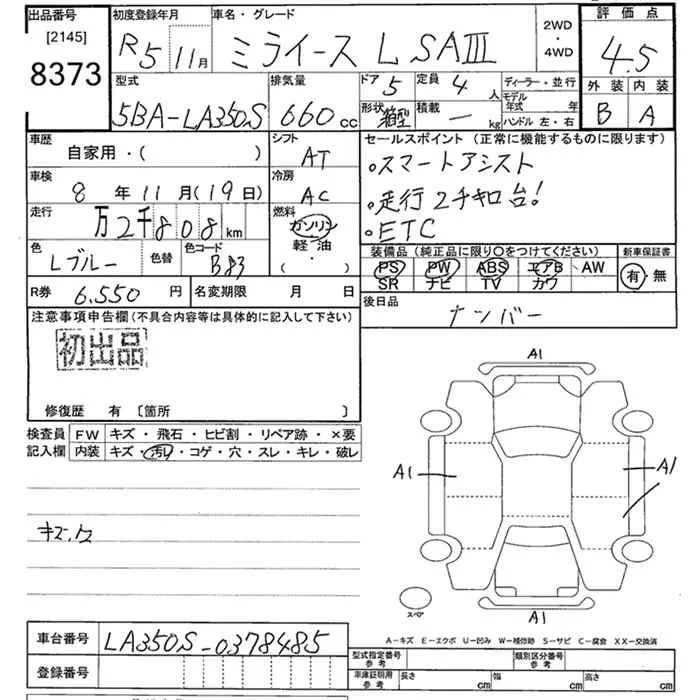 出品番号
[2145]
8373
初度登録年月
R5 11月
車名・グレード
ミライース L SAⅢ
2WD
・
4WD
評価点
4.5
外装 内装
B A
型式
5BA-LA350S
排気量
660 cc
ドア 5
定員 4 人
形状 箱型
積載 - kg
ディーラー・並行
モデル年式 年
ハンドル 左・右
車歴
自家用・( )
シフト
AT
車検
8年11月(19日)
冷房
AC
走行
万2千808km
燃料
ガソリン
軽・油
( ・ )
色
Lブルー
色替
色コード
B83
セールスポイント (正常に機能するものに限ります)
。スマートアシスト
。走行2千キロ台!
。ETC
装備品 (純正品に限り〇をつけてください)
PS PW ABS エアB AW
SR ナビ TV カワ
新車保証書
有・無
R券 6.550 円
名変期限 月 日
後日品
ナンバー
注意事項申告欄(不具合内容等は具体的に記入して下さい)
初出品
修復歴 有 〔箇所 〕
検査員記入欄
FW キズ・飛石・ヒビ割・リペア跡・×要
内装 キズ・汚レ・コゲ・穴・スレ・キレ・破レ
A1
A1
A1
A1
スペア
A-キズ E-エクボ U-凹み W-補修跡 S-サビ C-腐食 XX-交換済
車台番号
LA350S-0378485
登録番号
型式指定番号
参考
類別区分番号
参考
車庫証明用
参考
長さ cm
幅 cm
高さ cm